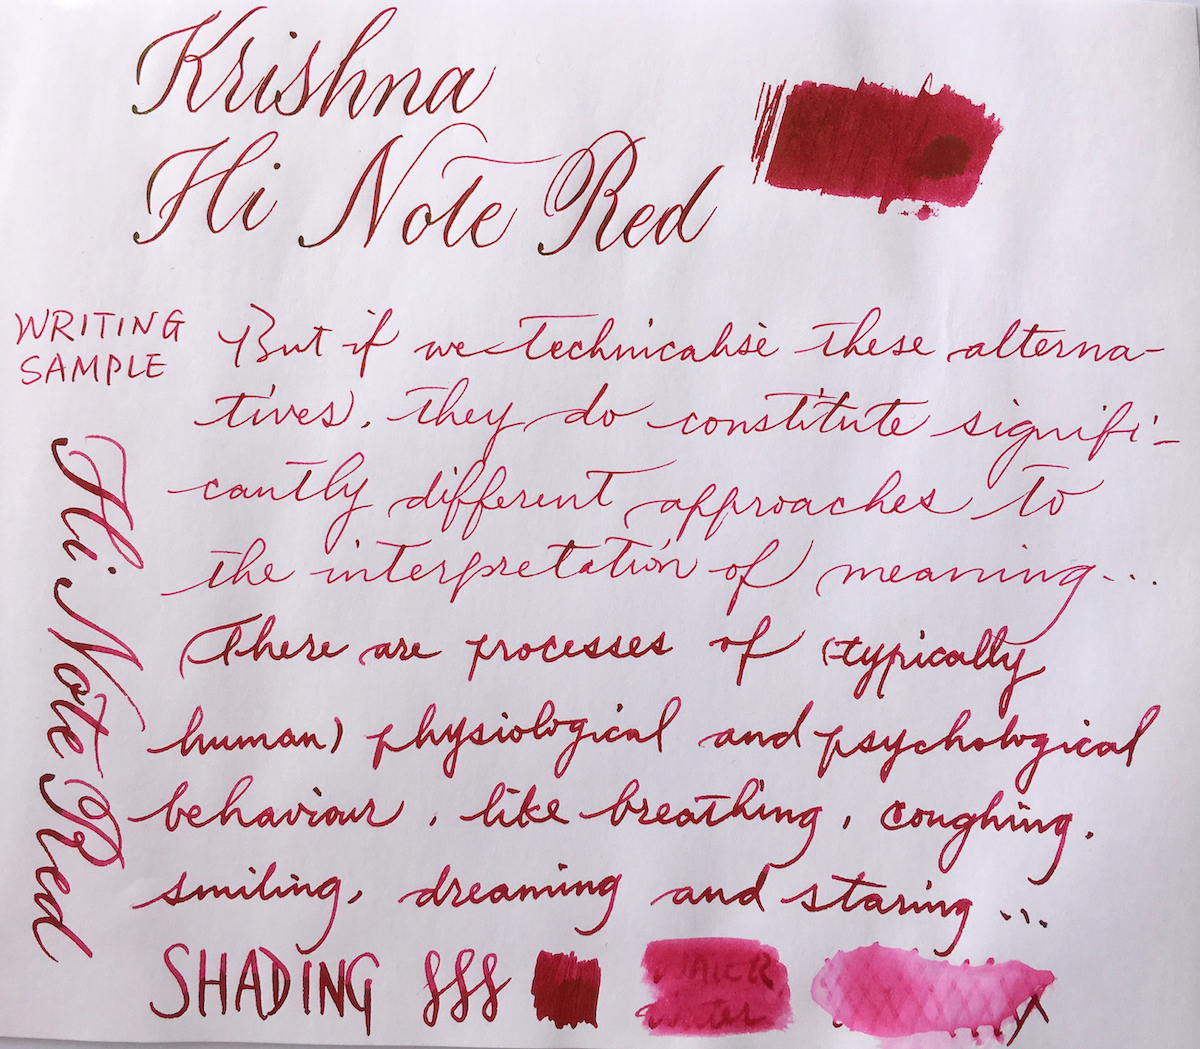 Krishna
Hi Note Red
WRITING
SAMPLE
But if we technicalise these alterna-
tives, they do constitute signifi-
cantly different approaches to
the interpretation of meaning...
There are processes of (typically
human) physiological and psychological
behaviour, like breathing, coughing,
smiling, dreaming and staring...
Hi Note Red
SHADING
WATER
water